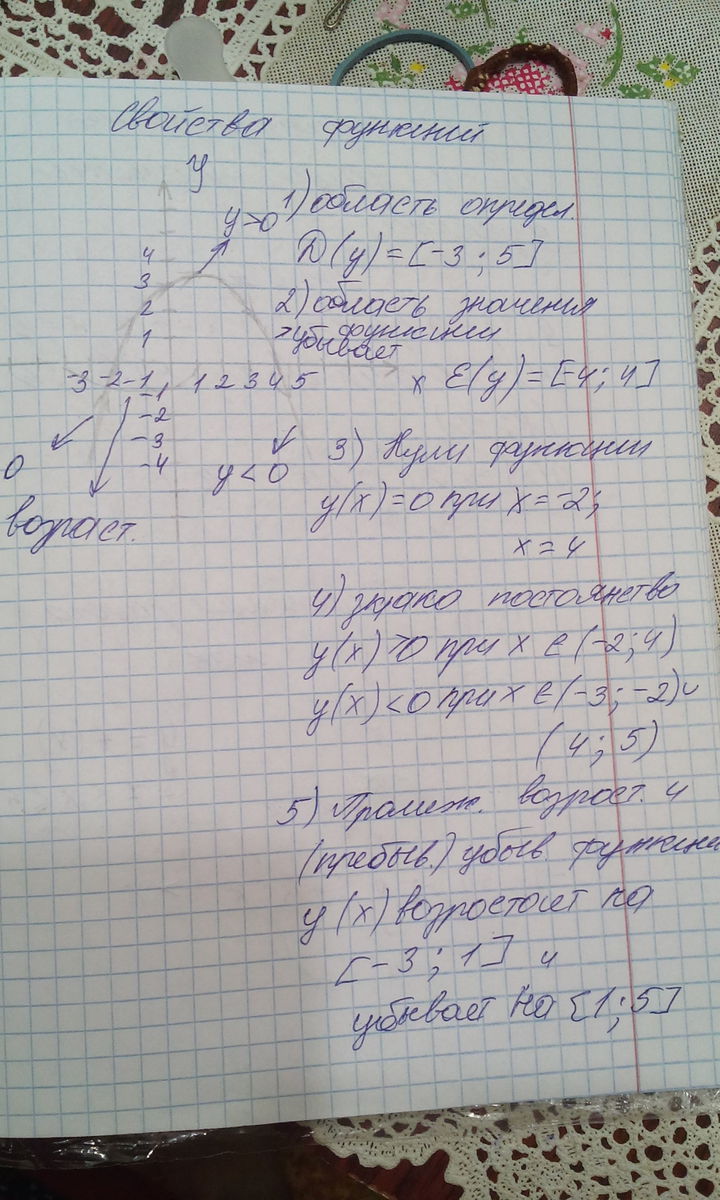 Свойства функций
y
1) область определ.
y>0
D(y)=[-3; 5]
4
3
2) область значения
функции
2
1
>убывает
-3 -2 -1 1 2 3 4 5
x E(y)=[-4; 4]
-1
-2
-3
-4
0
y<0
возраст.
3) Нули функции
y(x)=0 при x=-2;
x=4
4) знако постоянство
y(x)>0 при x ∈ (-2; 4)
y(x)<0 при x ∈ (-3; -2)∪
(4; 5)
5) Промеж. возрост. и
(пребыв.) убыв. функции
y(x) возростает на
[-3; 1] и
убывает на [1; 5]